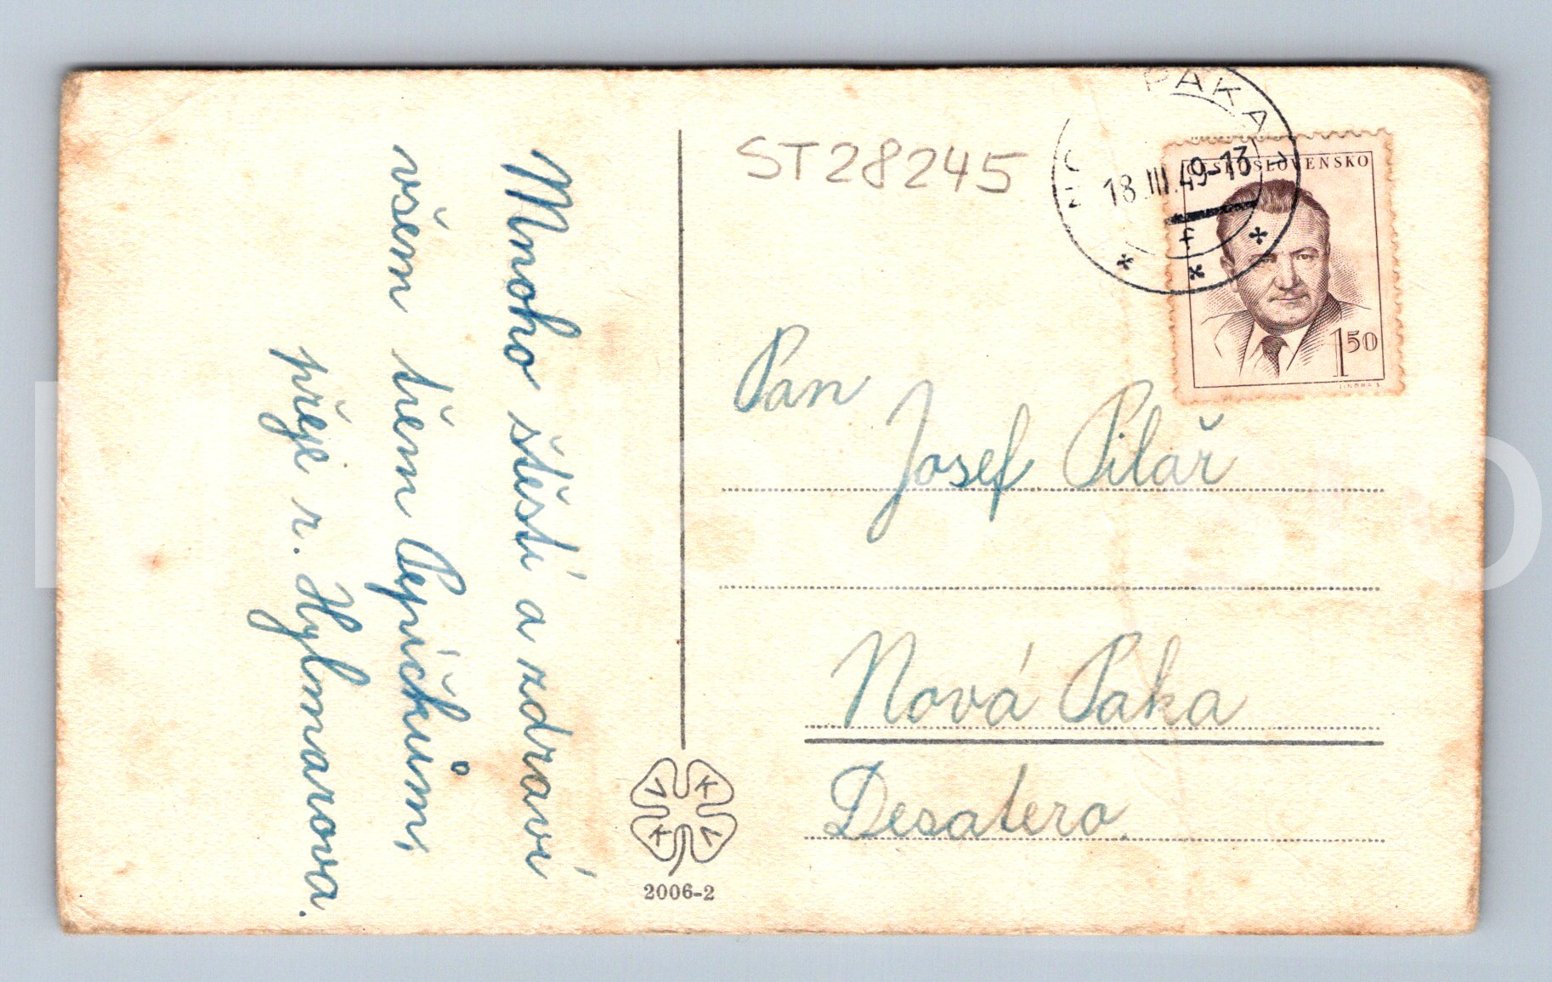 Mnoho štěstí a zdraví
všem třem Pepíčkům,
přeje r. Hylmarova.
ST28245
PAKA
18.III.49-13
f
ČESKOSLOVENSKO
1 50
Pan
Josef Pilař
Nová Paka
Desatero.
V K K V
2006-2